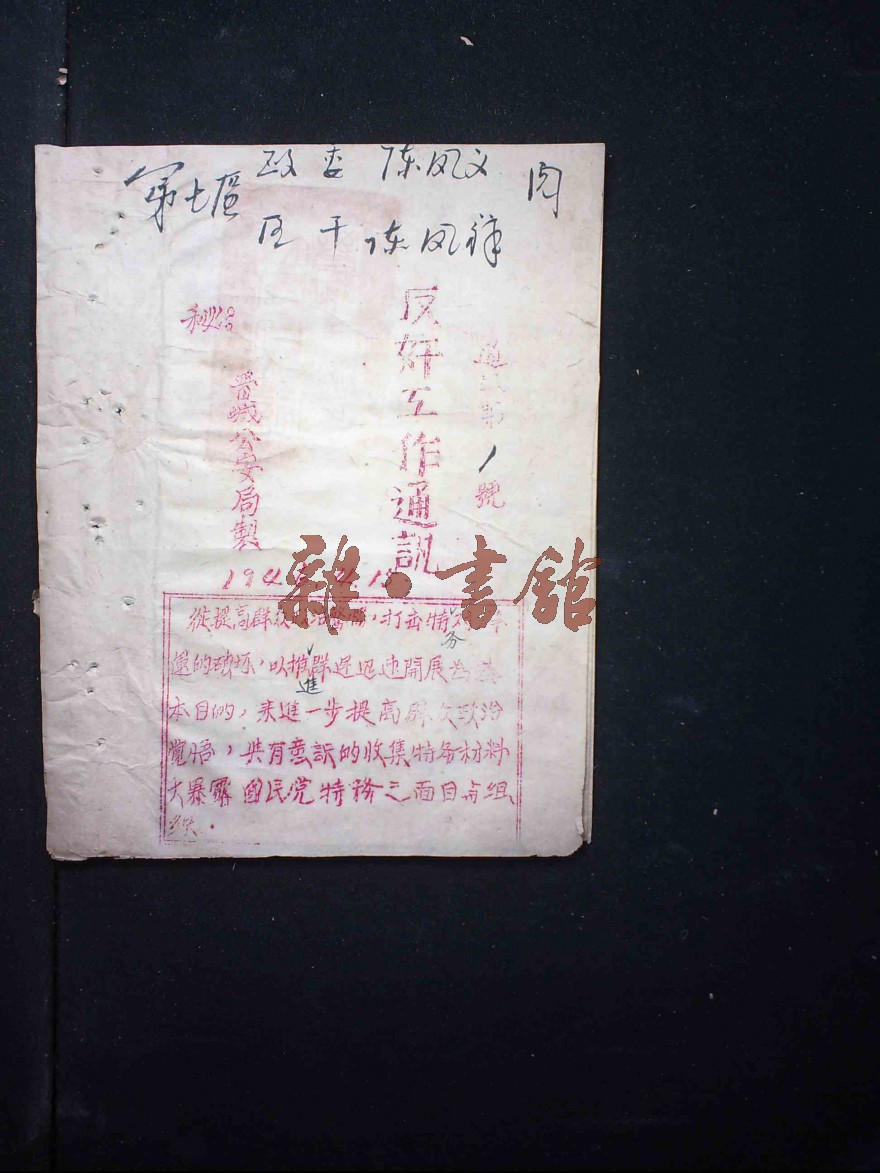 第七區
政委 陈凤文 阅
区干 陈凤祥
秘
反奸工作通訊
第 1 號
晋城公安局製
194
雜·書館
從提高群众政治,打击特务
的破坏,以推進群運迅速開展为基
本目的,来進一步提高群众政治
覚悟,共有意訳的收集特务材料
大暴露國民党特務之面目与組